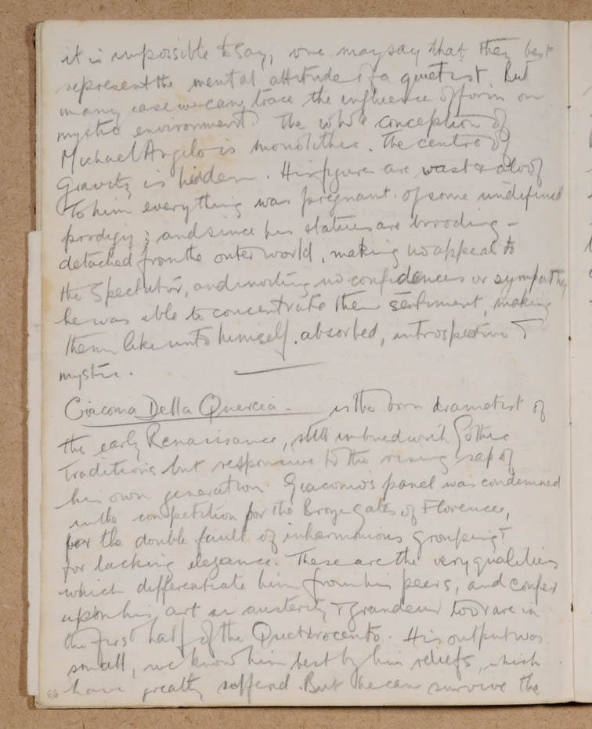 it is impossible to say, one may say that they best
represent the mental attitude of a quietist. But
in any case we can trace the influence of form on
mystic environment. The whole conception of
Michael Angelo is monolithic. The centre of
Gravity is hidden. His figures are vast & aloof
To him everything was pregnant of some undefined
prodigy; and since his statues are brooding -
detached from the outer world, making no appeal to
the Spectator, and inviting no confidences or sympathy
he was able to concentrate their sentiment, making
them like unto himself, absorbed, introspective &
mystic.
Giacomo Della Quercia - is the born dramatist of
the early Renaissance, still imbued with Gothic
Traditions but responsive to the rising sap of
his own generation. Giacomo's panel was condemned
in the competition for the Bronze Gates of Florence,
for the double fault of inharmonious grouping &
for lacking elegance. These are the very qualities
which differentiate him from his peers, and confer
upon his art an austerity & grandeur too rare in
the first half of the Quattrocento. His output was
small, we know him best by his reliefs, which
have greatly suffered. But he can survive the